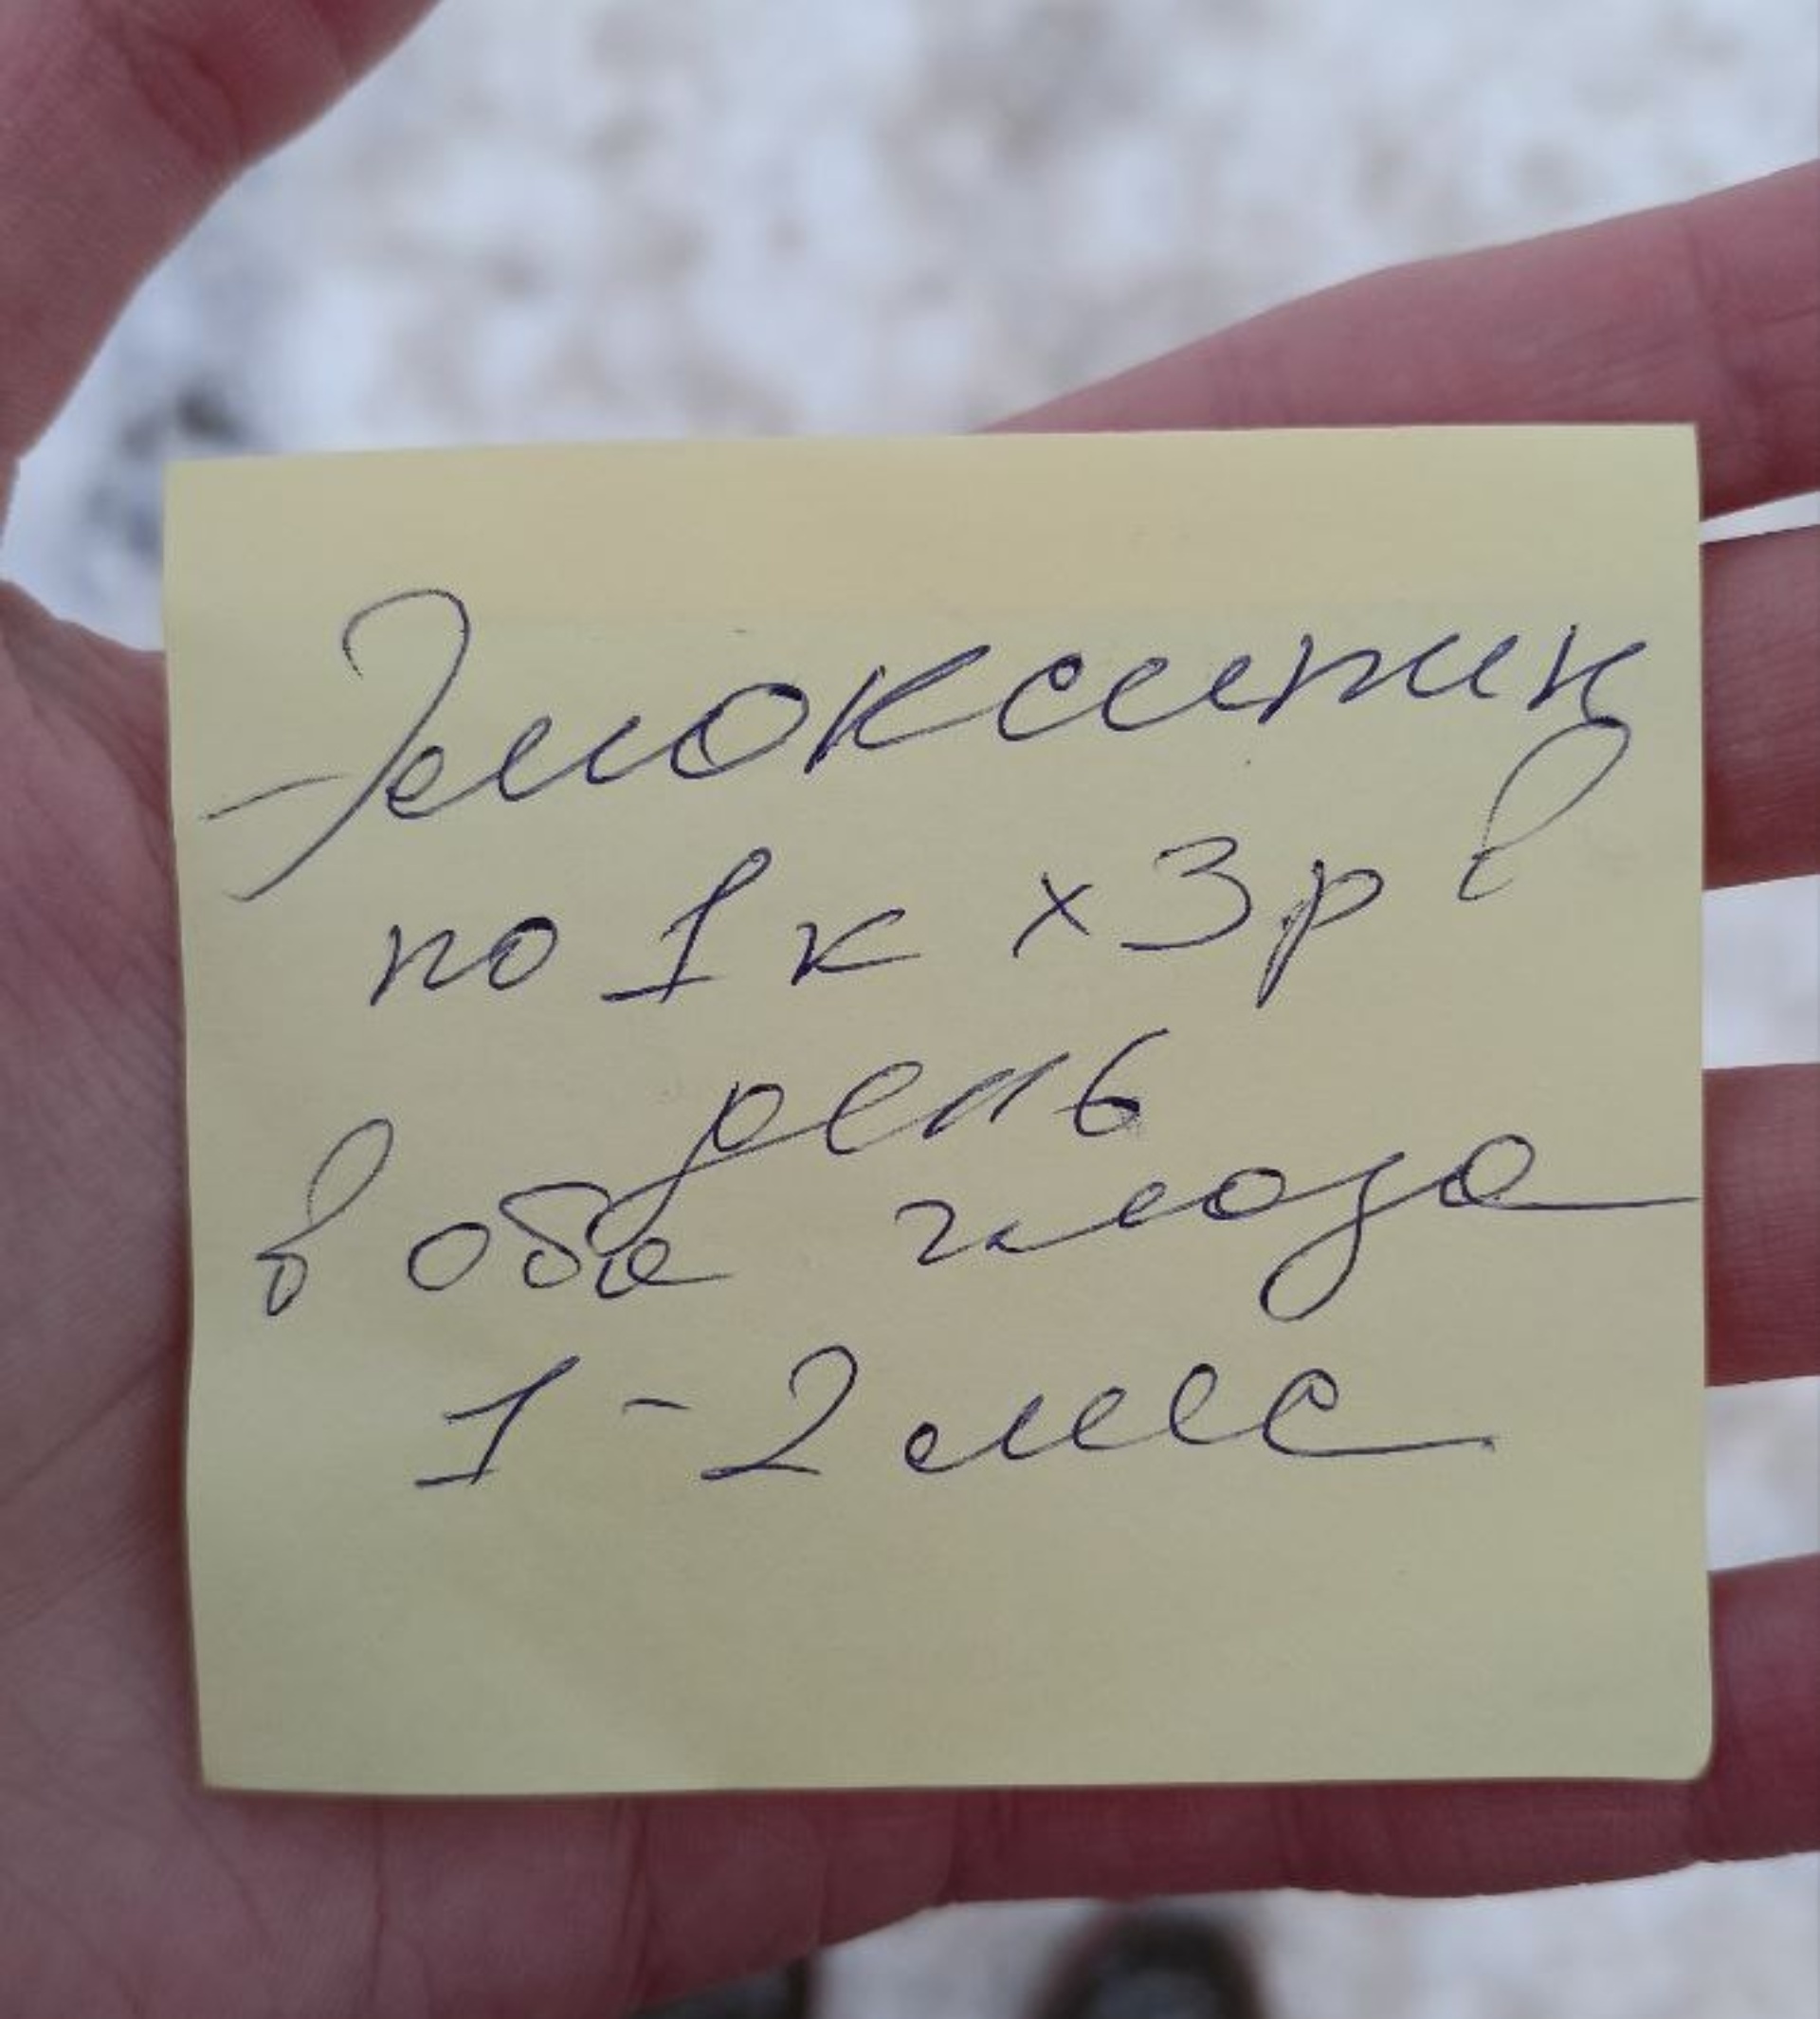 Эмоксипин
по 1к х 3р в
день
в оба глаза
1-2 мес